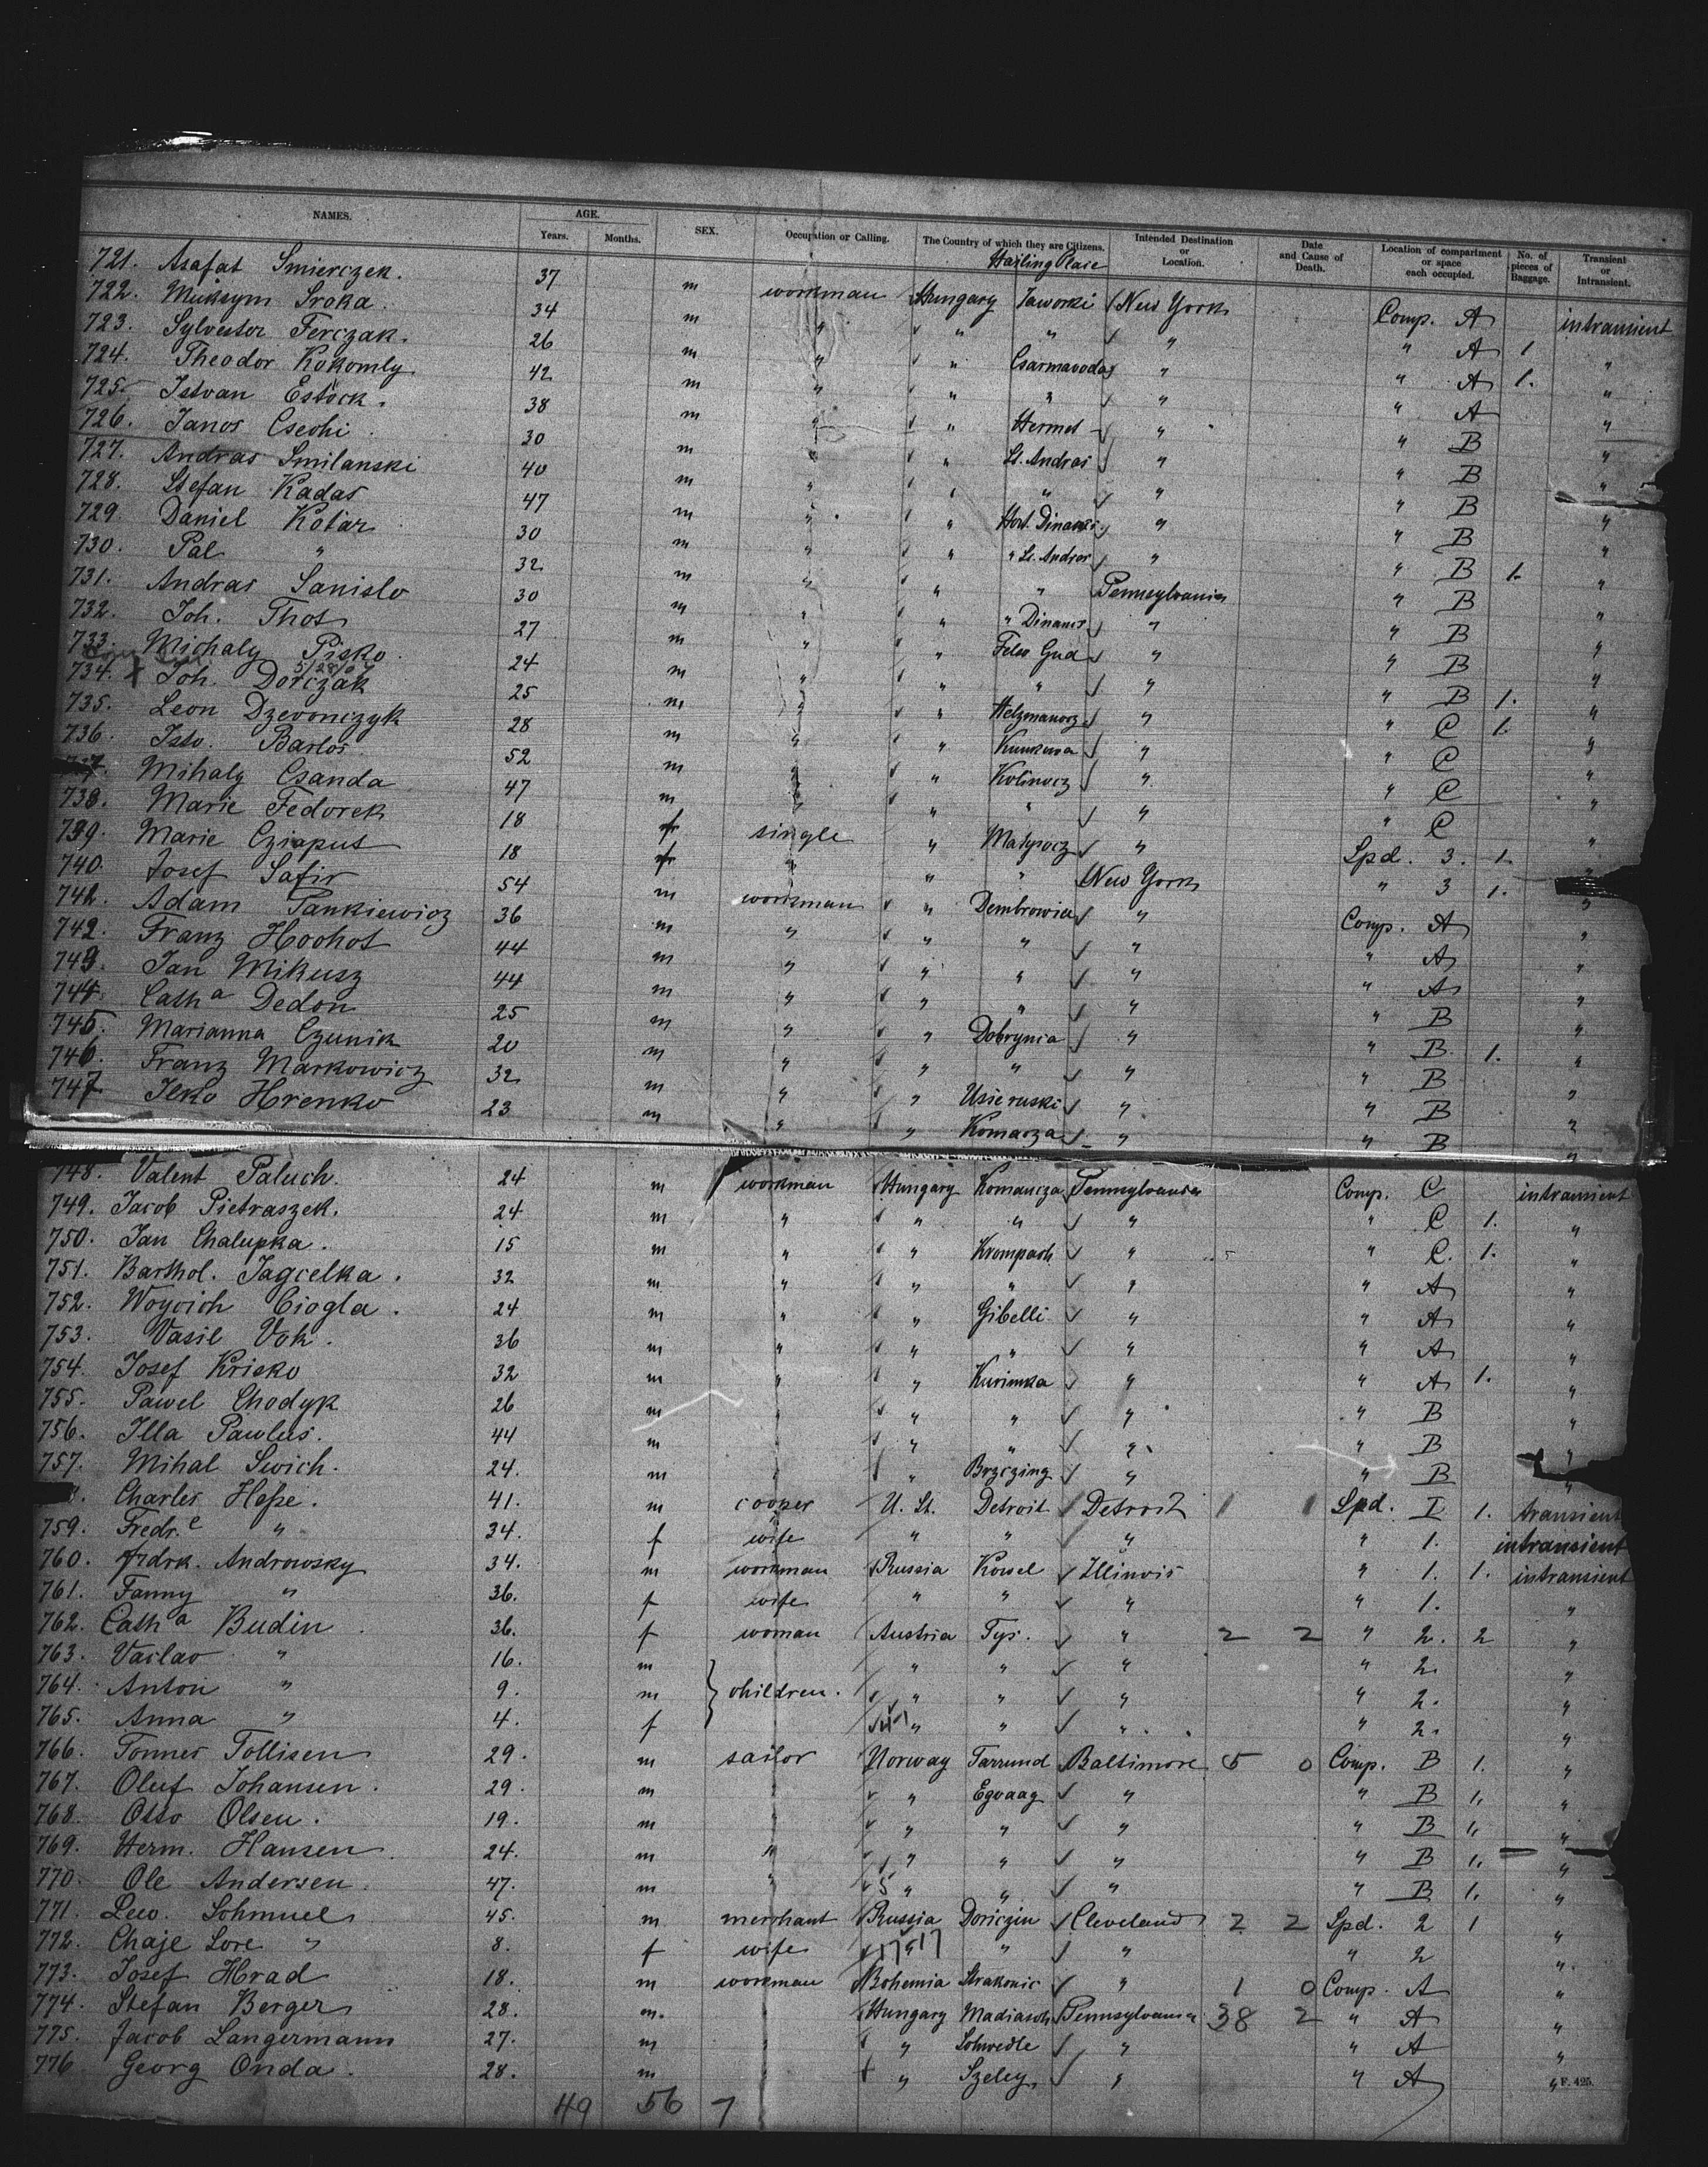 NAMES. AGE. Years. Months. SEX. Occupation or Calling. The Country of which they are Citizens. Hailing Place Intended Destination or Location. Date and Cause of Death. Location of compartment or space each occupied. No. of pieces of Baggage. Transient or Intransient.
721. Asafat Smierczek. 37 m workman Hungary Jaworki New York Comp. A intransient
722. Muksym Sroka. 34 m " " " " " A 1 "
723. Sylvester Ferczak. 26 m " " " " A 1. "
724. Theodor Kokomly. 42 m " " " " " A "
725. Istvan Estöck. 38 m " " Hermet " " B "
726. Janos Csechi. 30 m " " St. Andras " " B "
727. Andras Smilanski 40 m " " " " " B "
728. Stefan Kadas 47 m " " " " B "
729. Daniel Kotar 30 m " " " St. Andras " " B 1. "
730. Pal " 32 m " " " Pennsylvania " B "
731. Andras Sanislo 30 m " " " " " B "
732. Joh. Thot 27 m " " " " B "
733. Michaly Pisko. 24 m " " " " " B 1. "
734. X Joh. Dorczak 25 m " " " " C 1. "
735. Leon Dzevonczyk 28 m " " " " C "
736. Istv. Bartos 52 m " " " " C "
Mihaly Csanda 47 m " " " " " C "
738. Marie Fedorek 18 f single " " Spd. 3. 1. "
739. Marie Cziaput 18 f " " " New York " 3 1. "
740. Josef Safir 54 m workman " " Comp. A "
741. Adam Pankiewicz 36 m " " " " " A "
742. Franz Hochot 44 m " " " " " A "
743. Jan Mikusz 44 m " " " " " B "
744. Catha Dedon 25 m " " Dobrynia " " B 1. "
745. Marianna Czunik 20 m " " " " " B "
746. Franz Markowicz 32 m " " Usieruski " " B "
747 Ilko Hrenko 23 m " " Komarza " " B "
748. Valent Paluch. 24 m workman Hungary Komancza Pennsylvania Comp. C intransient
749. Jacob Pietraszek. 24 m " " " " " C 1. "
750. Jan Chalupka. 15 m " " Krompach " " C. 1. "
751. Barthol. Jagcelka. 32 m " " " " " A "
752. Woycich Ciogla. 24 m " " Gibelli " " A "
753. Vasil Vok. 36 m " " " " " A "
754. Josef Krisko 32 m " " Kurimka " " A 1. "
755. Pawel Chodyk 26 m " " " " " B "
756. Illa Pawlus. 44 m " " " " " B "
757. Mihal Swich. 24. m " " Brzczing " " B "
Charles Hesse. 41. m cooper U. St. Detroit Detroit 1 1 Spd. I 1. transient
759. Fredr.e " 34. f wife " " " " 1. intransient
760. Frdrk. Androwsky 34. m workman Russia Kowel Illinois " 1. 1. intransient
761. Fanny " 36. f wife " " " " 1. "
762. Catha Budin. 36. f woman Austria Tys. " 2 2 " 2. 2 "
763. Vaclav " 16. m " " " " 2. "
764. Anton " 9. m children. " " " " 2. "
765. Anna " 4. f " " " " 2. "
766. Tonnes Tollisen 29. m sailor Norway Farsund Baltimore 5 0 Comp. B 1. "
767. Oluf Johansen. 29. m " " Egvaag " " B 1. "
768. Otto Olsen. 19. m " " " " " B 1. "
769. Herm. Hansen. 24. m " " " " " B 1. "
770. Ole Andersen. 47. m " " " " " B 1. "
771. Lew. Schmuel 45. m merchant Russia Doriczin Cleveland 2 2 Spd. 2 1 "
772. Chaje Lore " 8. f wife " " " " 2 "
773. Josef Hrad 18. m workman Bohemia Strakonic " 1 0 Comp. A "
774. Stefan Berger 28. m. Hungary Madiasch Pennsylvania 38 2 " A "
775. Jacob Langermann 27. m " Schwedle " " A "
776 Georg Onda. 28. m " Szeley, " " A "
F. 425.
49 56 7